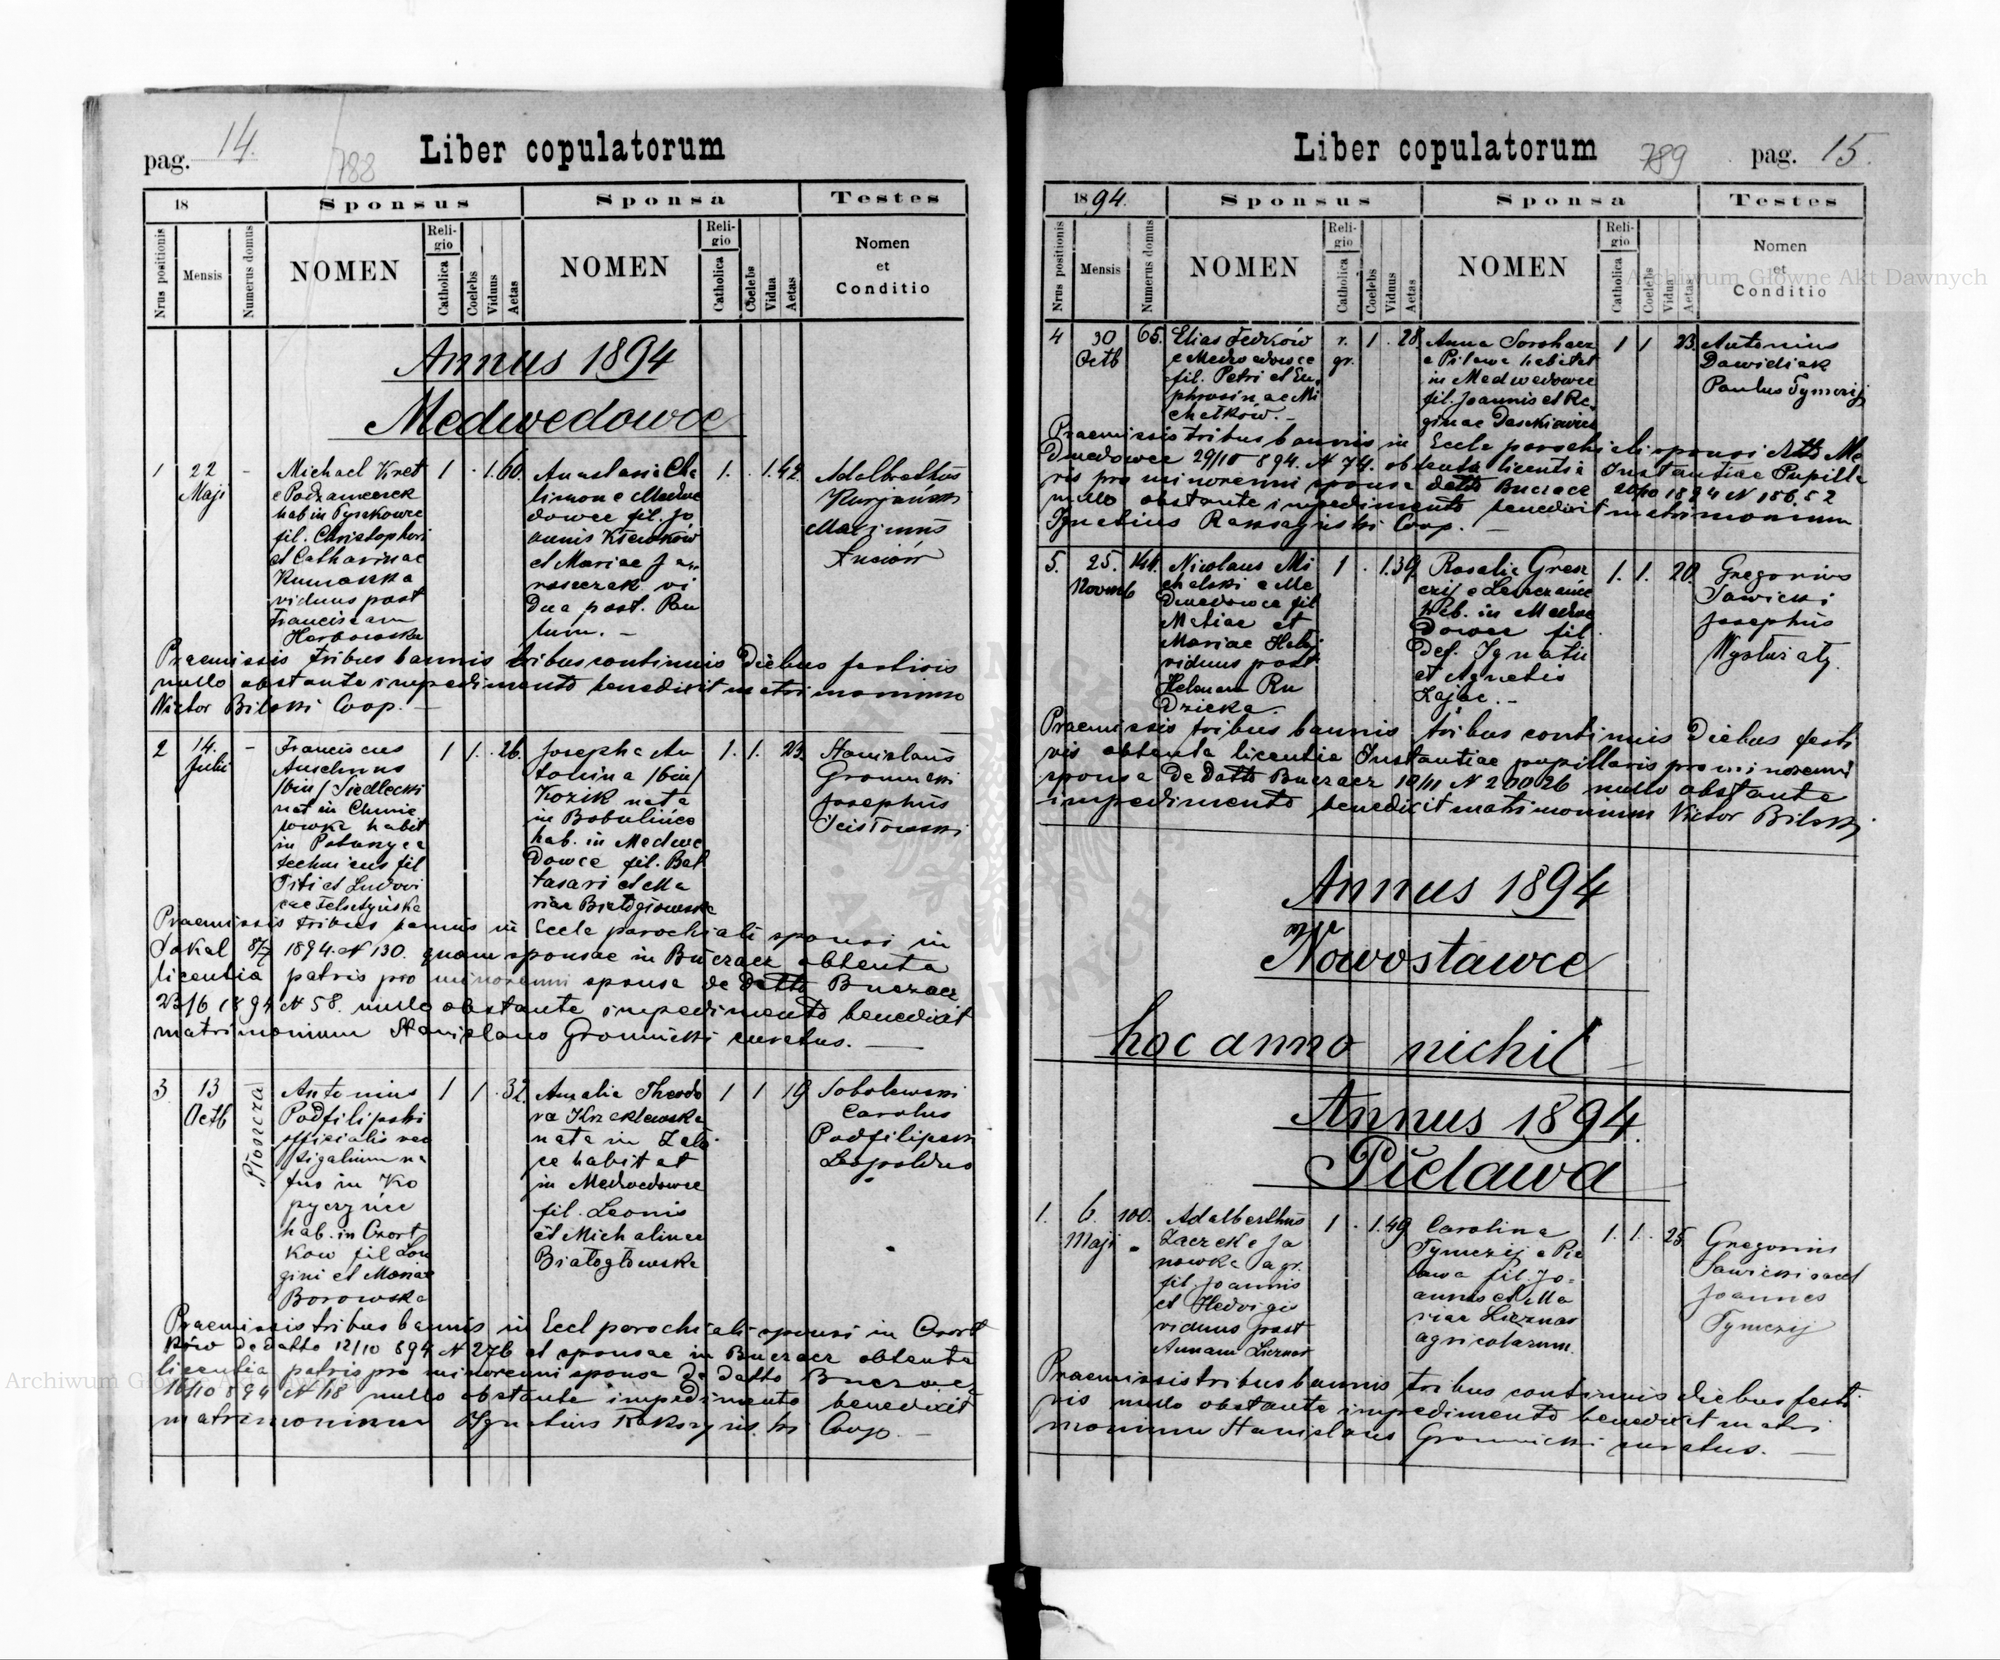 pag. 14.
788
Liber copulatorum
18
Sponsus
Sponsa
Testes
Nrus positionis
Mensis
Numerus domus
NOMEN
Religio
Catholica
Coelebs
Viduus
Aetas
NOMEN
Religio
Catholica
Coelebs
Vidua
Aetas
Nomen
et
Conditio
Annus 1894
Medwedowce
1
22
Maji
-
Michael Kret
e Podzameczek
hab in Pyszkowce
fil. Christophori
et Catharinae
viduus post
Franciscam
1
.
1.
60.
Anastasia Cha
limon e Medwe
dowce fil. Jo
annis
et Mariae Ja
roszczak vi
dua post. Pan
1.
.
1.
42.
Adalberthus
Maximus
Praemissis tribus bannis tribus continuis diebus festivis
nullo obstante impedimento benedixit matrimonium
Victor Bilski Coop. —
2
14.
Julii
-
Franciscus
Anselmus
/bin/ Siedlecki
nat in Chmie
lowka habit
in Poturzyca
technicus fil
Titi et Ludovi
cae Felsztyńska
1
1.
.
26.
Josepha An
tonina /bin/
Kozik nata
in Bobulince
hab. in Medwe
dowce fil. Bal
tasari et Ma
riae Białogłowska
1.
1.
23.
Stanislaus
Gromnicki
Josephus
Praemissis tribus bannis in Eccle parochiali sponsi in
Sokal 8/7 1894. N 130. quam sponsae in Buczacz obtenta
licentia patris pro minorenni sponsa de datto Buczacz
23/6 1894 N 58. nullo obstante impedimento benedixit
matrimonium Stanislaus Gromnicki curatus. —
3
13
Octb
Antonius
Podfilipski
officialis vec
tigalium na
tus in Ko
pyczyńce
hab. in Czort
kow fil Lon
gini et Mariae
Borowska
1
1
.
32.
Amalia Theodo
ra Krzeklewska
nata in
habitat
in Medwedowce
fil. Leonis
et Michalinae
Białogłowska
1
1
19
Sobolewski
Carolus
Podfilipski
Leopoldus
Praemissis tribus bannis in Eccl parochiali sponsi in Czort
ków de datto 12/10 894 N 276 et sponsae in Buczacz obtenta
licentia patris pro minorenni sponsa de datto Buczacz
10/10 894 N 118 nullo obstante impedimento benedixit
matrimonium Ignatius Coop. —
Liber copulatorum
789
pag. 15.
1894.
Sponsus
Sponsa
Testes
Nrus positionis
Mensis
Numerus domus
NOMEN
Religio
Catholica
Coelebs
Viduus
Aetas
NOMEN
Religio
Catholica
Coelebs
Vidua
Aetas
Nomen
et
Conditio
4
30
Octb
65.
Elias Fedków
e Medwedowce
fil. Petri et Eu
phrosinae Mi
chałków. -
r.
gr.
1
.
28.
Anna
e Pilawa habitat
in Medwedowce
fil. Joannis et Re
ginae Daszkiewicz
1
1
23.
Antonius
Dawidiak
Paulus Tymczij
Praemissis tribus bannis in Eccle parochiali sponsi Me
dwedowce 29/10 894. N 74. obtenta licentia Instantiae Pupilla
ris pro minorenni sponsa datto Buczacz 1894 N 15652
nullo obstante impedimento benedixit matrimonium
Ignatius Coop. —
5.
25.
Novemb
141.
Nicolaus Mi
chalski e Me
dwedowce fil
Matiae et
Mariae
viduus post
Helenam Ru
dzicka.
1
.
1.
39.
Rosalia
hab. in Medwe
dowce fil.
def. Ignatii
et Agnetis
Zając. -
1.
1.
20.
Gregorius
Sawicki
Josephus
Praemissis tribus bannis tribus continuis diebus festi
vis obtenta licentia Instantiae pupillaris pro minorenni
sponsa de datto Buczacz 10/11 N 20026 nullo obstante
impedimento benedixit matrimonium Victor Bilski
Annus 1894
Nowostawce
hoc anno nichil
Annus 1894.
Pielawa
1.
6.
Maji
100.
Adalberthus
Zaczek e Ja
nowka agr.
fil. Joannis
et Hedvigis
viduus post
Annam Licznar
1
.
1.
49.
Carolina
Tymczij e Pie
lawa fil. Jo=
annis et Ma
riae Licznar
agricolarum.
1.
1.
25.
Gregorius
Sawicki
Joannes
Tymczij
Praemissis tribus bannis tribus continuis diebus festi
vis nullo obstante impedimento benedixit matri
monium Stanislaus Gromnicki curatus. —
Archiwum Główne Akt Dawnych
Archiwum Główne Akt Dawnych